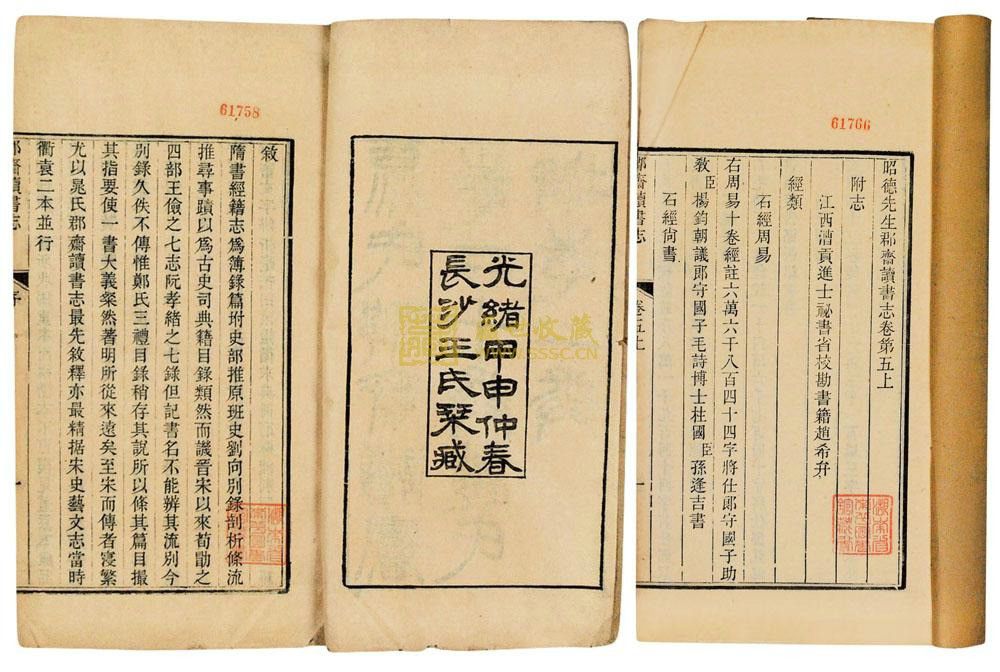 61766
昭德先生郡齋讀書志卷第五上
附志
江西漕貢進士祕書省校勘書籍趙希弁
經類
石經周易
右周易十卷經註六萬六千八百四十四字將仕郎守國子助
教臣楊鈞朝議郎守國子毛詩博士柱國臣孫逢吉書
石經尚書
郡齋讀書志 卷五上 一
光緒甲申仲春
長沙王氏琹臧
61758
敘
隋書經籍志爲簿錄篇坿史部推原班史劉向別錄剖析條流
推尋事蹟以爲古史司典籍目錄類然而譏晉宋以來荀勖之
四部王儉之七志阮孝緒之七錄但記書名不能辨其流別今
別錄久佚不傳惟鄭氏三禮目錄稍存其說所以條其篇目撮
其指要使一書大義粲然著明所從來遠矣至宋而傳者寖繁
尤以晁氏郡齋讀書志最先敘釋亦最精据宋史藝文志當時
衢袁二本並行
郡齋讀書志 序 一
收藏